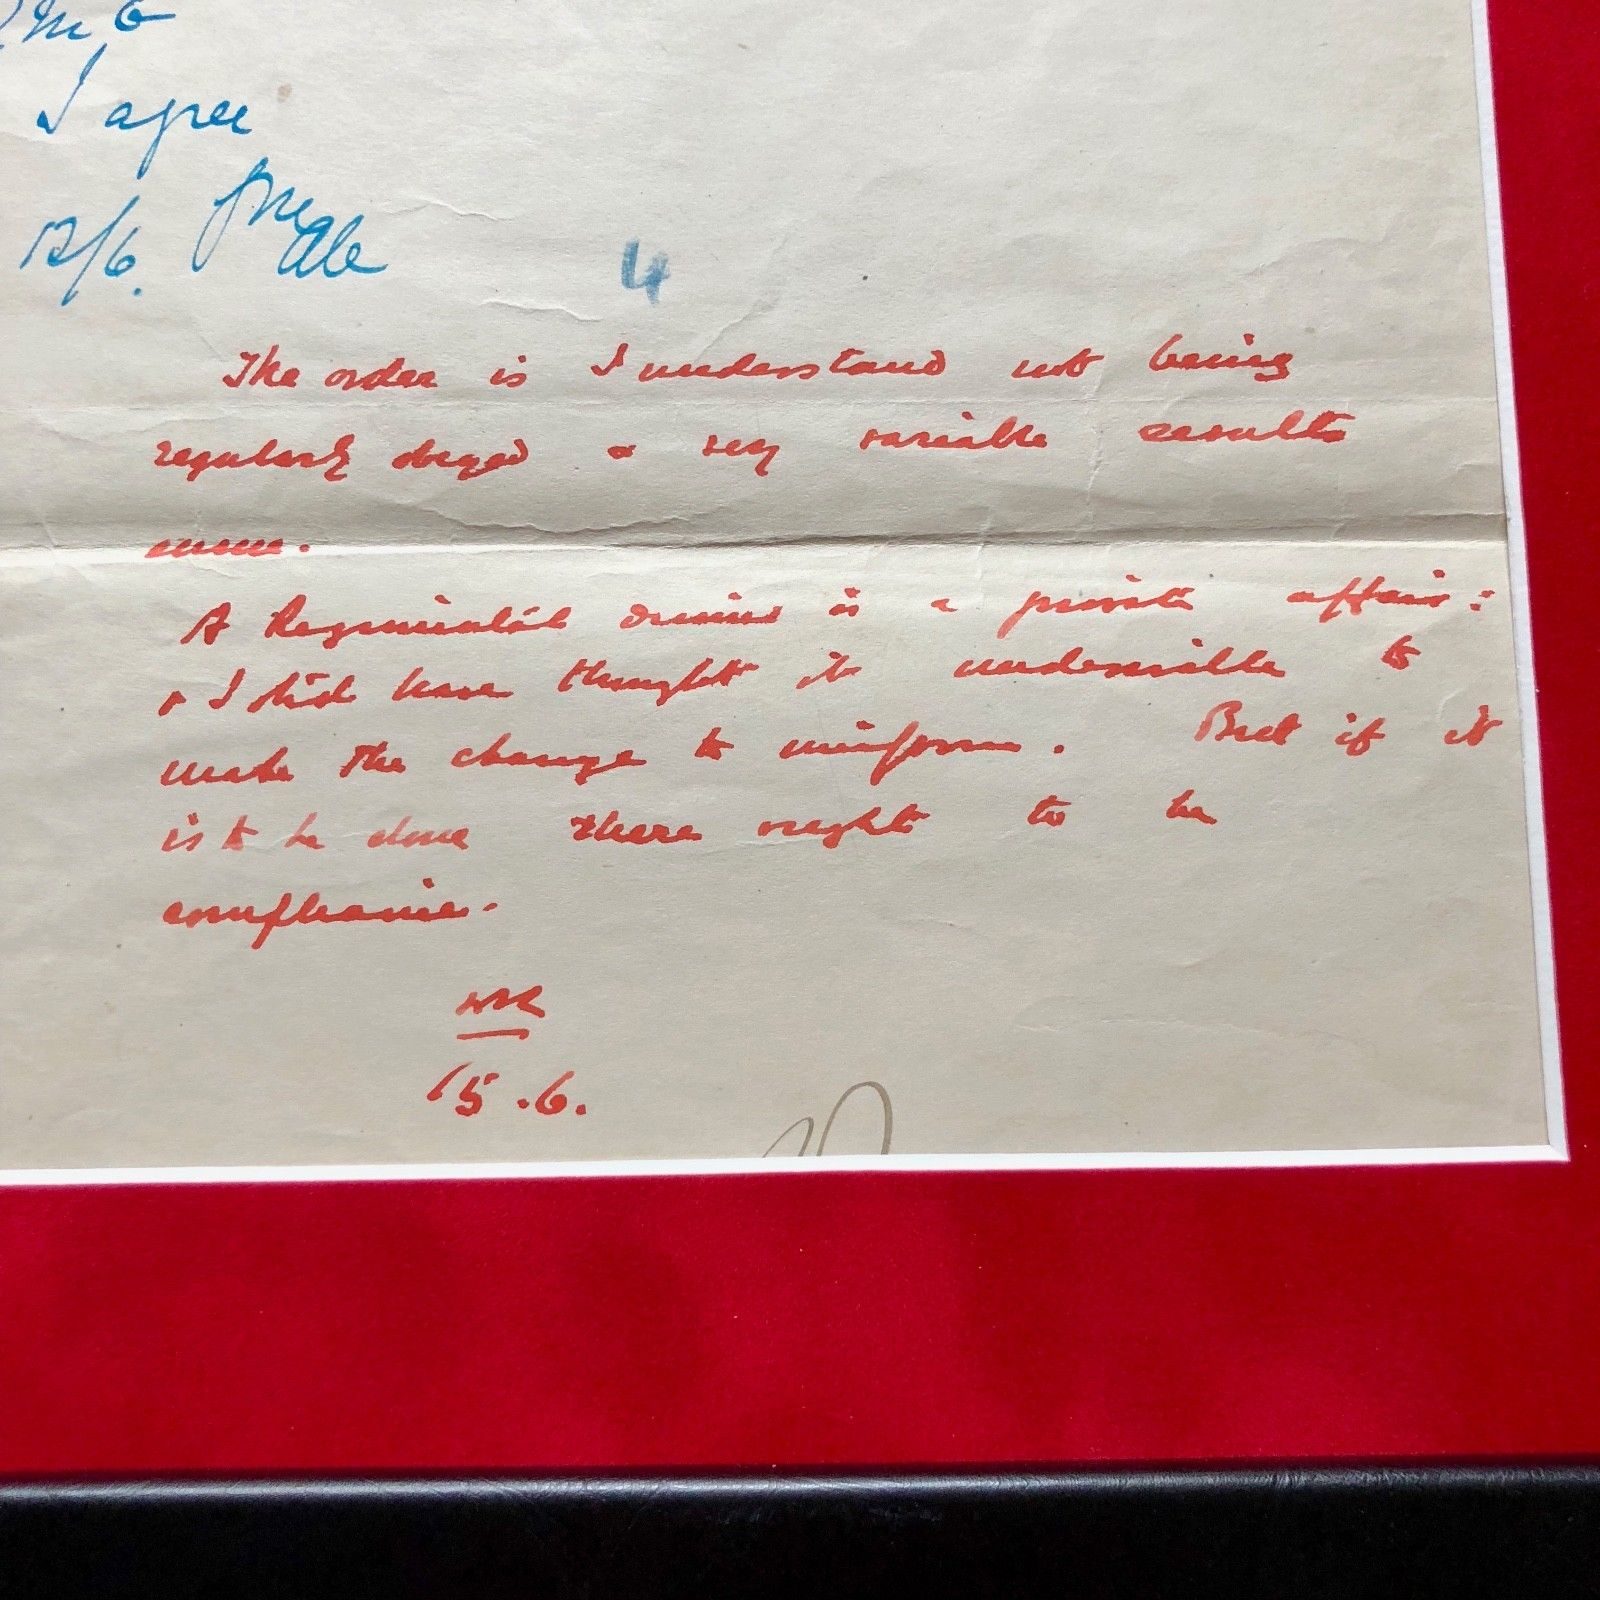 I agree
12/6.
4
The order is I understand not being
regularly obeyed & very variable results
ensue.
A Regimental dinner is a private affair:
& I shld have thought it undesirable to
make the change to uniform. But if it
is to be done there ought to be
compliance.
WSC
15.6.